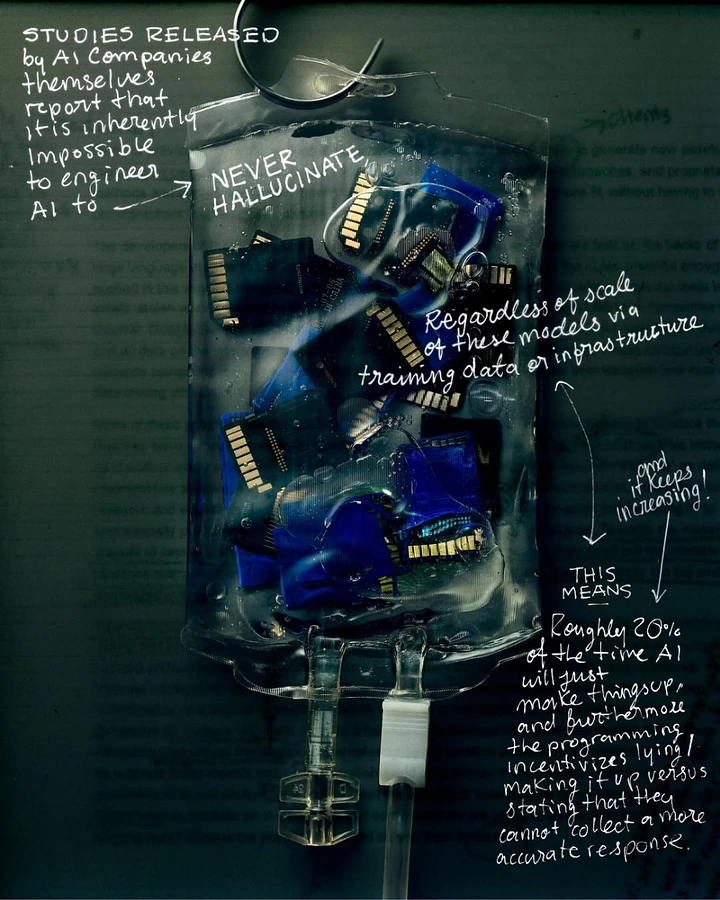 STUDIES RELEASED
by AI Companies
themselves
report that
it is inherently
Impossible
to engineer
AI to
NEVER
HALLUCINATE,
Regardless of scale
of these models via
training data or infrastructure
and
it keeps
increasing!
THIS
MEANS
Roughly 20%
of the time AI
will just
make things up,
and furthermore
the programming
incentivizes lying/
making it up versus
stating that they
cannot collect a more
accurate response.